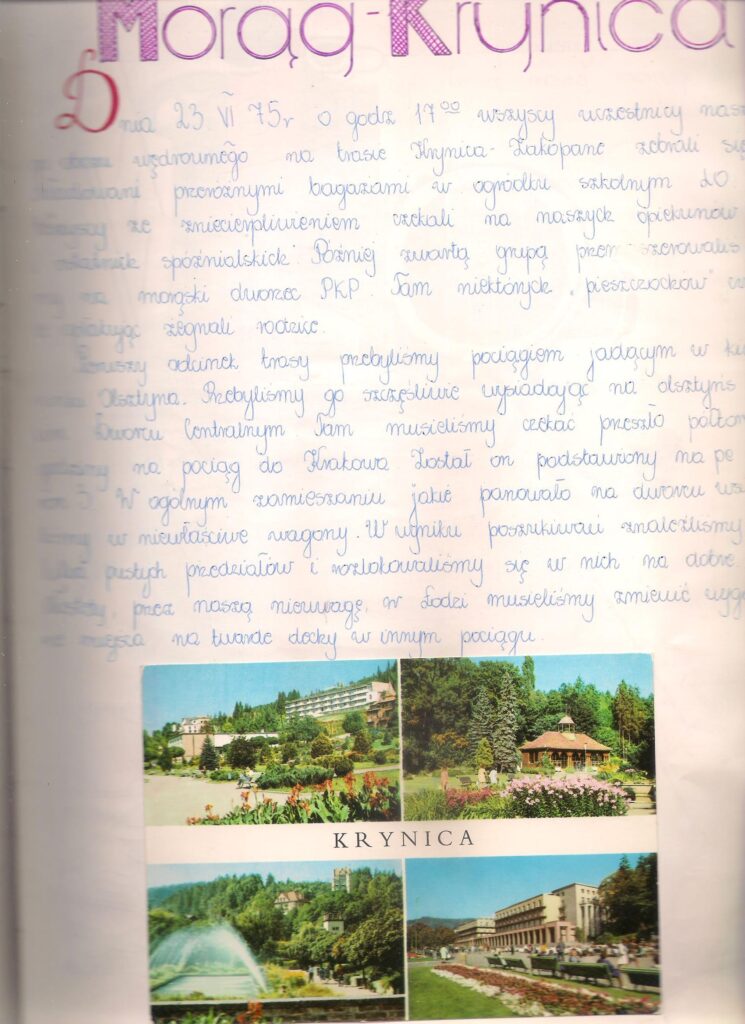 Morąg-Krynica
Dnia 23 VI 75r o godz 17⁰⁰ wszyscy uczestnicy nasz
obozu wędrownego na trasie Krynica-Zakopane zebrali się
przeróżnymi bagażami w ogródku szkolnym LO
ze zniecierpliwieniem czekali na naszych opiekunów
spóźnialskich. Później zwartą grupą przemaszerowaliś
my na morąski dworzec PKP. Tam niektórych "pieszczochów"
żegnali rodzice.
Pierwszy odcinek trasy przebyliśmy pociągiem jadącym w kie
Olsztyna. Przebyliśmy go szczęśliwie wysiadając na olsztyńs
Dworcu Centralnym. Tam musieliśmy czekać przeszło półtor
godziny na pociąg do Krakowa. Został on podstawiony na pe
3. W ogólnym zamieszaniu jakie panowało na dworcu
w niewłaściwe wagony. W wyniku poszukiwań znaleźliśmy
kilka pustych przedziałów i rozlokowaliśmy się w nich na dobre.
Niestety, przez naszą nieuwagę, w Łodzi musieliśmy zmienić wygo
miejsca na twarde dechy w innym pociągu.
KRYNICA